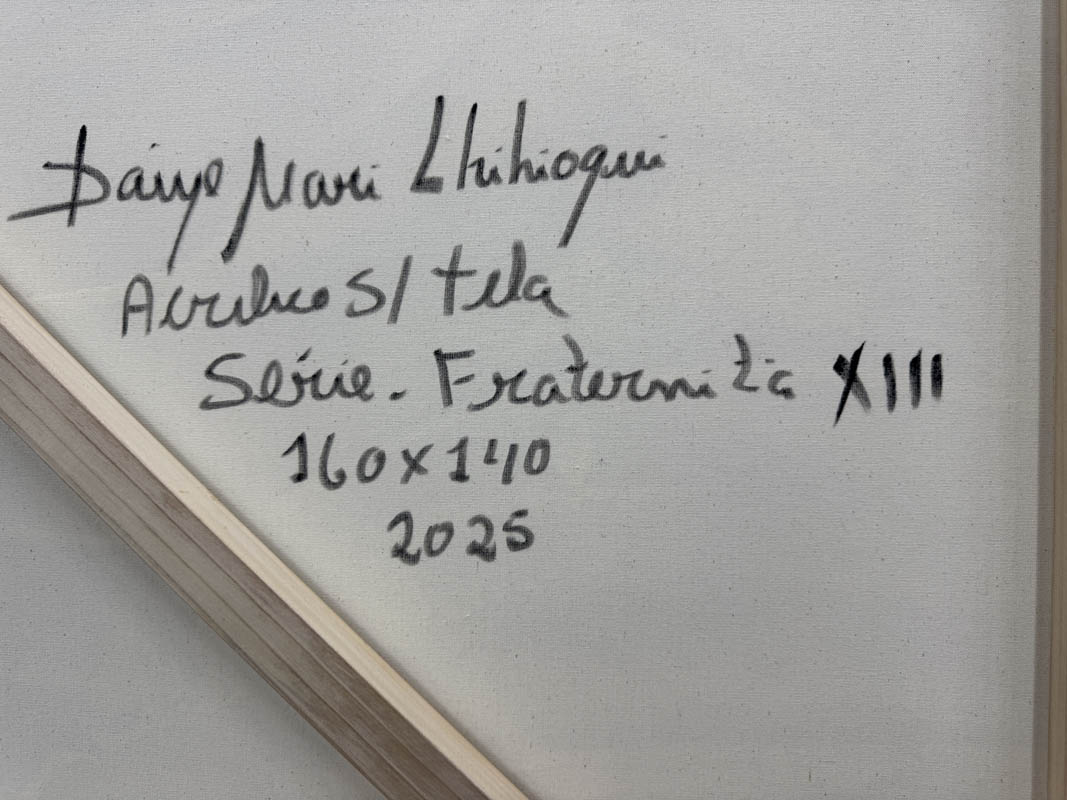 Daiye Mari Chihioqui
Acrílico S/ tela
Série - Fraternità XIII
160x140
2025